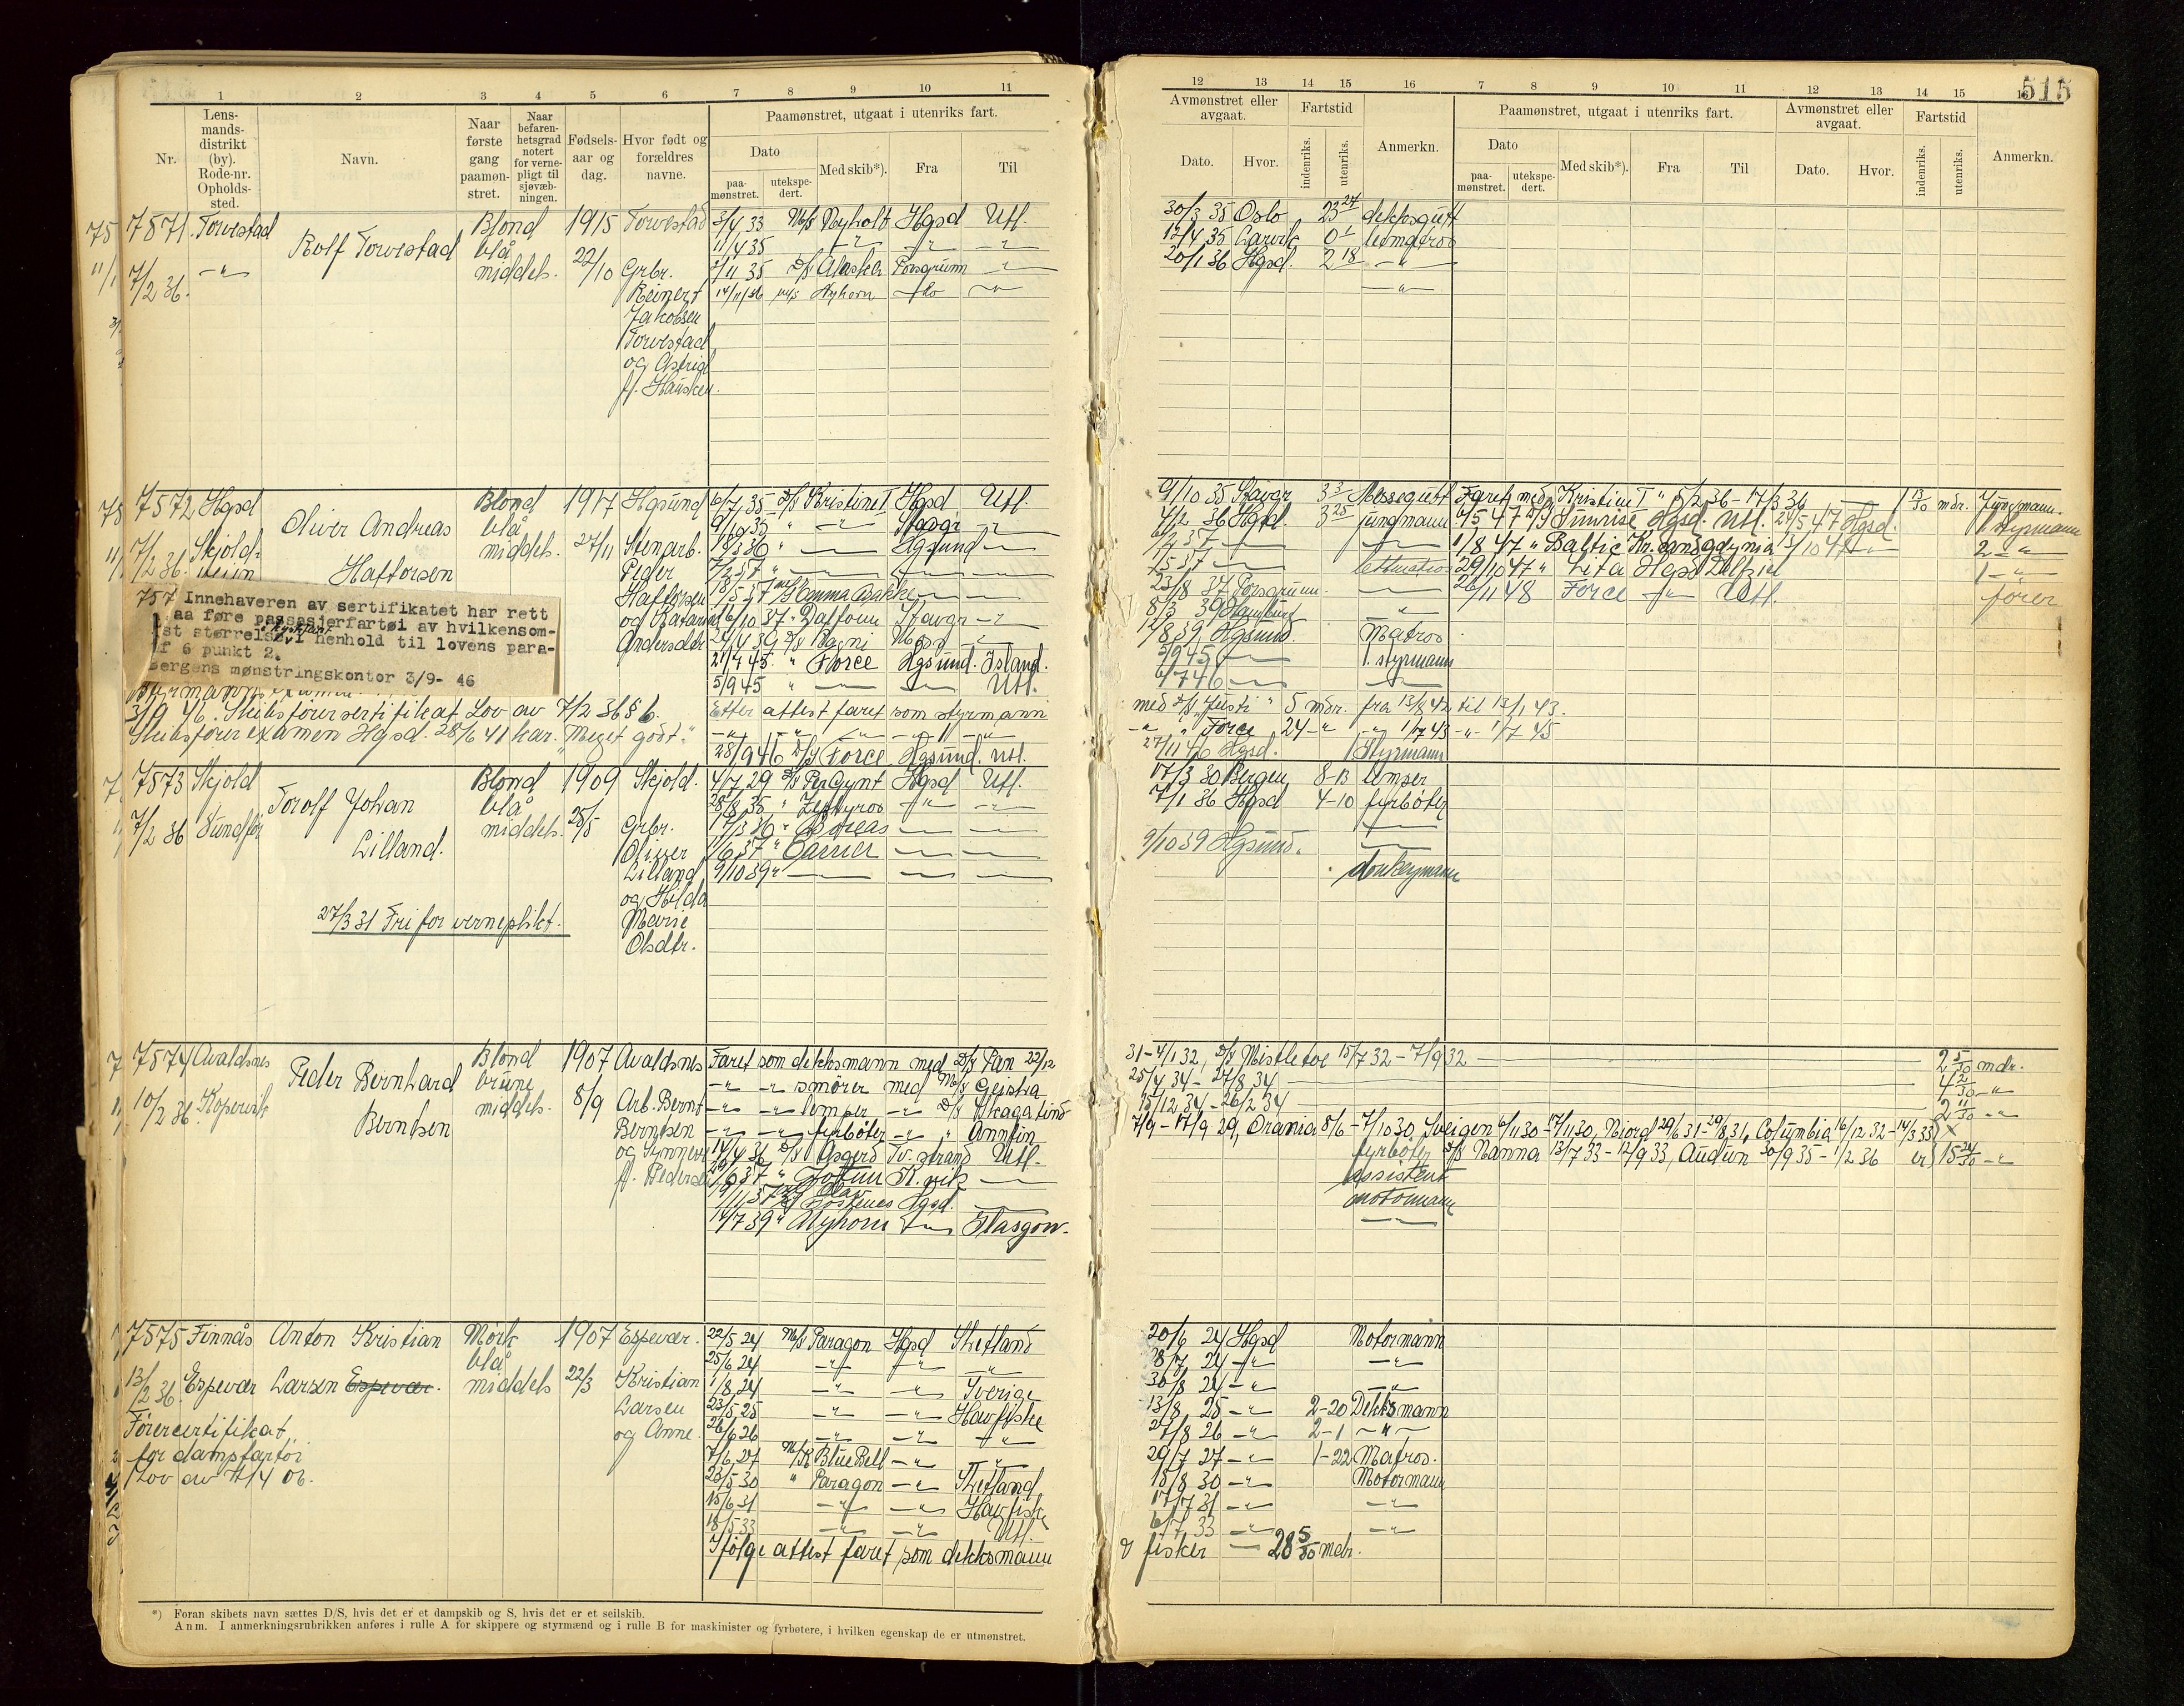 515
1 2 3 4 5 6 7 8 9 10 11
Nr.
Lens-mands-distrikt (by). Rode-nr. Opholds-sted.
Navn.
Naar første gang paamøn-stret.
Naar befaren-hetsgrad notert for verne-pligt til sjøvæb-ningen.
Fødsels-aar og dag.
Hvor født og forældres navne.
Paamønstret, utgaat i utenriks fart.
Dato
paa-mønstret.
utekspe-dert.
Med skib*).
Fra
Til
12 13 14 15 16 7 8 9 10 11 12 13 14 15 16
Avmønstret eller avgaat.
Dato.
Hvor.
Fartstid
indenriks.
utenriks.
Anmerkn.
Paamønstret, utgaat i utenriks fart.
Dato
paa-mønstret.
utekspe-dert.
Med skib*).
Fra
Til
Avmønstret eller avgaat.
Dato.
Hvor.
Fartstid
indenriks.
utenriks.
Anmerkn.
7571. Torvestad
7/2 36. -"-
Rolf Torvestad
Blond
blå
middels.
1915
22/10
Torvestad
Grbr.
Reinert
Jakobsen
Torvestad
og Astrid
f. Hausken.
3/4 33 M/S Nyholt Hgsd Utl.
11/4 35 -"- -"- -"-
2/11 35 D/S Alaska Porsgrunn -"-
14/11/36 M/S Nyhorn
30/3 35 Oslo 23 24 dekksgutt
12/4 35 Larvik 0 1 lettmatros
20/1 36 Hgsd. 2 18 -"-
-"-
7572 Hgsd
7/2 36. Skjold-
Oliver Andreas
Haftorsen
Blond
blå
middels.
1917
27/11
Hgsund
Stenarb.
Peder
Haftorsen
og
Andersdtr
6/7 35 D/S Kristine I Hgsd Utl.
9/10 35 " -"- Stavgr -"-
18/3 36 " Hgsund
7/2 37 "
18/5 37 M/S Emma Bakke
16/10 37 " Stavgr -"-
24/4 39 D/S Ragni Hgsd -"-
21/7 45. " Force Hgsund. Island.
5/9 45 " Utl.
Innehaveren av sertifikatet har rett
aa føre passasjerfartøi av hvilkensom-
st størrelse i henhold til lovens para-
f 6 punkt 2.
ergens mønstringskontor 3/9- 46
3/9 46. Skibsførersertifikat Lov av 7/2 36 § 6.
Skibsfører examen Hgsd. 28/6 41 kar. "Meget godt."
Etter attest faret som styrmann
28/9 46 D/S Force Hgsund. Utl.
9/10 35 Stavgr 3 3 Messegutt
4/2 36 Hgsd. 3 25 jungmann
lettmatros
23/8 37 Porsgrunn.
8/3 39 Hamburg -"-
1/8 39 Hgsund. Matros
5/9 45 1. styrmann
4/7 46
med D/S "Justi" 5 mdr. fra 13/8 42 til 13/1 43.
-"- " "Force 24 -"- -"- 1/7 43 -"- 1/7 45
27/11 46 Hgsd. 1 Styrmann
Faret med "Kristine I" 5/2 36 - 17/3 36 1 13/30 mdr. Jungmann.
6/5 47 D/S Sunrise Hgsd. Utl. 24/5 47 Hgsd. 1. styrmann
1/8 47 " Baltic Kr.sand Gdynia 13/10 47 -"- 2 -"-
29/10 47 " Lita Hgsd Delfzijl 1 -"-
26/11 48 Force -"- Utl. fører
7573 Skjold
7/2 36
Torolf Johan
Lilland.
27/3 31 Fri for verneplikt.
Blond
blå
middels.
1909
28/5
Skjold.
Grbr.
Oliver
Lilland
og Hilda
Marie
Olsdtr.
4/7 29 D/S Per Gynt Hgsd Utl.
28/8 35 " Zephyros -"- -"-
17/3 36 " Boreas
1/6 37 " Carrier
9/10 39 "
17/3 30 Bergen 8-13 lemper
7/1 36 Hgsd 4-10 fyrbøter
9/10 39 Hgsund.
donkeymann
7574 Avaldsnes
10/2 36. Kopervik
Peder Bernhard
Berntsen
Blond
brune
middels.
1907
8/9
Avaldsnes
Arb. Bernt
Berntsen
og Synnøve
f. Pederse
Faret som dekksmann med D/S Pan 22/12
-"- -"- smører med M/S Geisha
-"- -"- lemper -"- D/S Skagatind
-"- -"- fyrbøter -"- " Annfin
14/4 36 D/S Asgerd Tv.strand Utl.
1/6 37 " Jotun K.vik
Hgsd.
14/7 39 " Nyhorn Glasgow.
31-4/1 32, D/S Mistletoe 15/7 32 - 7/9 32 2 5/30 mdr.
25/4 34 - 27/8 34 4 2/30 -"-
15/12 34 - 26/2 34 2 11/30 -"-
7/9 - 17/9 29, Orania 8/6 - 7/10 30 Sveigen 6/11 30 - 17/11 30, Njord 29/6 31 - 29/8 31, Columbia 16/12 32 - 14/3 33
fyrbøter D/S Nanna 13/7 33 - 12/9 33, Audun 30/9 35 - 1/2 36 er 15 24/30 -"-
assistent
motormann
7575 Finnås
13/2 36. Espevær
Anton Kristian
Larsen Espevær.
Mørk
blå
middels
1907
22/3
Espevær.
Kristian
Larsen
og Anne.
Førercertifikat
for dampfartøi
Lov av
22/5 24 M/S Paragon Hgsd Shetland
25/6 24 -"- -"- -"-
1/8 24 -"- -"- Sverige
23/5 25 -"- -"- Havfiske
26/6 26 -"- -"- -"-
7/6 27 M/K Blue Bell -"- -"-
28/5 30 " Paragon -"- Shetland
15/6 31 -"- -"- Havfiske
18/5 33 -"- -"- Utl.
Ifølge attest faret som dekksmann
20/6 24 Hgsd Motormann
18/7 24 -"- -"-
30/8 24 -"- -"-
13/8 25 -"- 2-20 Dekksmann
27/8 26 -"- 2-1 -"-
29/7 27 -"- 1-22 Matros.
15/8 30 -"- Motormann
17/7 31 -"- -"-
6/7 33 -"- -"-
fisker 28 5/30 mdr.
*) Foran skibets navn sættes D/S, hvis det er et dampskib og S, hvis det er et seilskib.
Anm. I anmerkningsrubrikken anføres i rulle A for skippere og styrmænd og i rulle B for maskinister og fyrbøtere, i hvilken egenskap de er utmønstret.